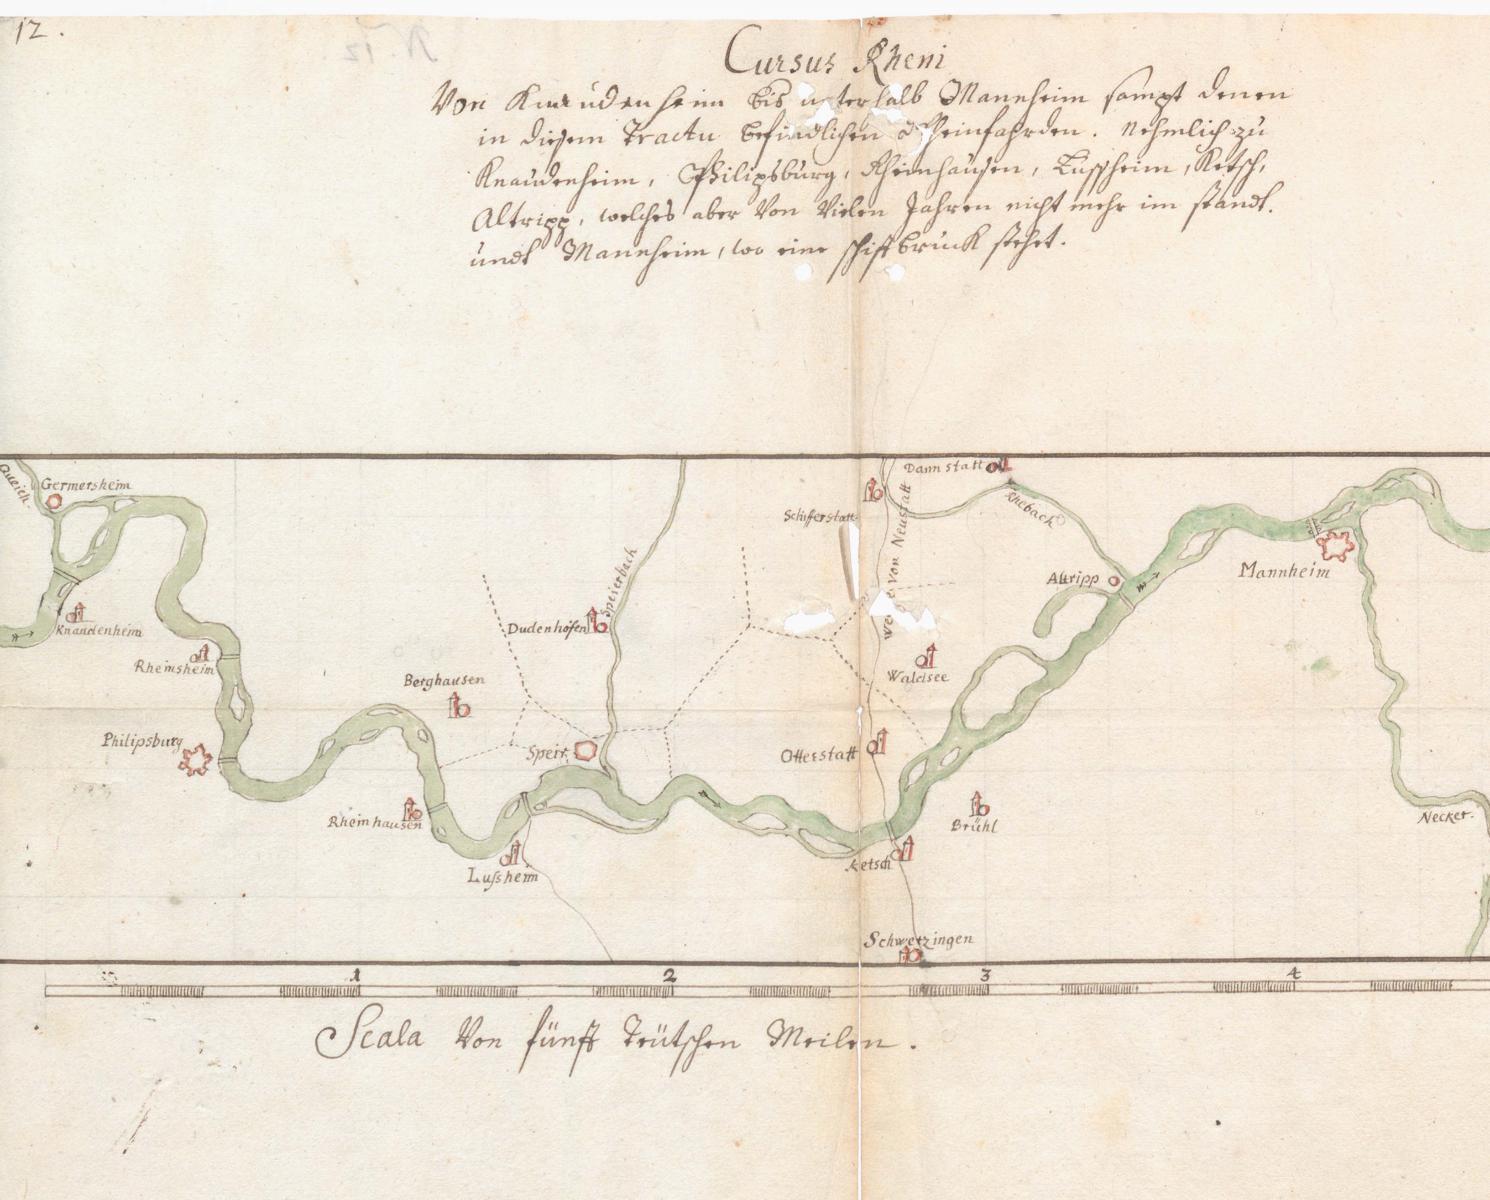 12.
N. 12
Cursus Rheni
Von Knaudenheim bis unterhalb Mannheim sampt denen
in diesem Tractu befindlichen Rheinfahrden. Nehmlich zu
Knaudenheim, Philipsburg, Rheinhausen, Lussheim, Ketsch,
Altripp, welches aber von vielen Jahren nicht mehr im standt.
undt Mannheim, wo eine schiffbruck stehet.
Queich.
Germersheim
Dannstatt
Rhebach
Schifferstatt
Weeg von Neustatt
Speierbach
Mannheim
Altripp
Knaudenheim
Dudenhofen
Rheinsheim
Waldsee
Berghausen
Philipsburg
Speir.
Otterstatt
Rheinhausen
Brühl
Necker.
Ketsch
Lußheim
Schwetzingen
1 2 3 4
Scala Von fünff Teütschen Meilen.